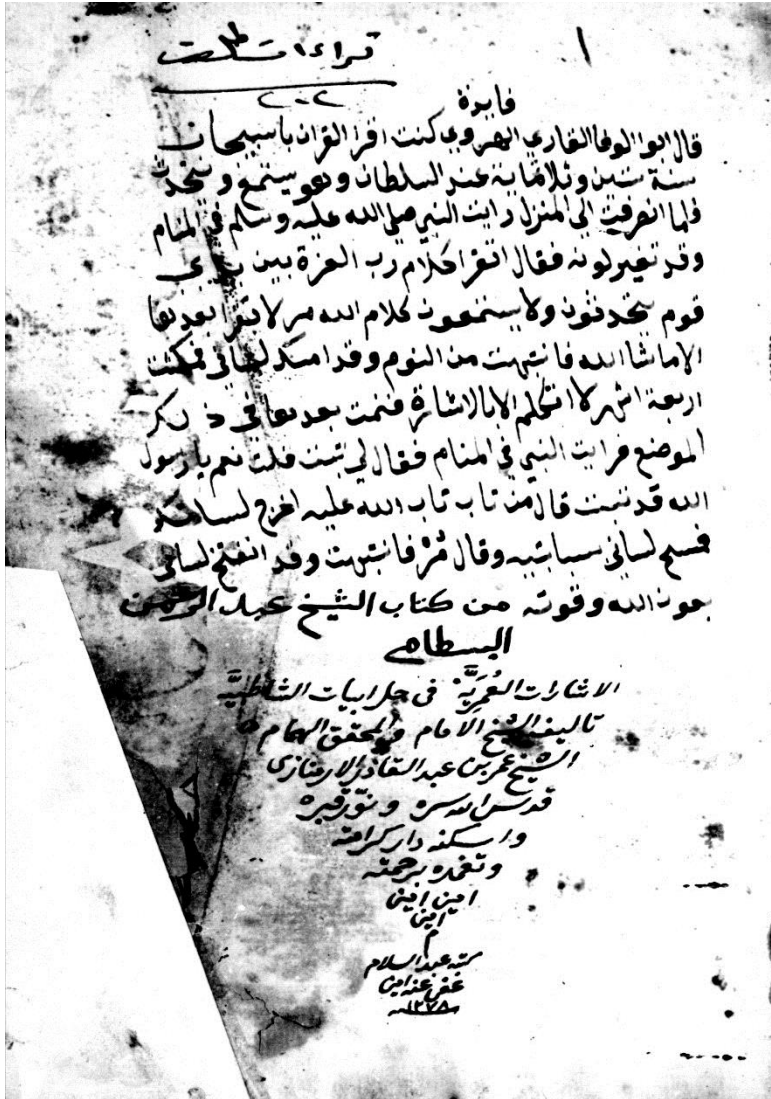 ١
قراءات طلعت
٢٠٢
فايدة
قال ابو الوفا القاري الهروي كنت اقرا القران باسبيجان
سنة ستين وثلاثماية عند السلطان وهو يستمع ويتحدث
فلما انصرفت الى المنزل رايت النبي صلي الله عليه وسلم في المنام
وقد تغير لونه فقال اتقرا كلام رب العزة بين يدى
قوم يتحدثون ولا يستمعون كلام الله مر لا تقرا بعدها
الا ماشا الله فانتبهت من النوم وقد امسك لساني فمكثت
اربعة اشهر لا اتكلم الا بالاشارة فنمت بعدها في ذلك
الموضع فرايت النبي في المنام فقال لي تبت قلت نعم يا رسول
الله قد تبت قال من تاب تاب الله عليه اخرج لسانك
فمسح لساني بسبابتيه وقال مُرْ فانتبهت وقد انفتح لساني
بعون الله وقوته من كتاب الشيخ عبد الرحمن
البسطامي
الاشارات العُمَريَّة في حل ابيات الشاطبيَّة
تاليف الشيخ الامام والمحقق الهمام
الشيخ عمر بن عبد القادر الارمنازى
قدس الله سره ونوّر قبره
واسكنه دار كرامته
وتغمده برحمته
امين امين
امين
م
كتبه عبد السلام
عفى عنه امين
١٢٧٨